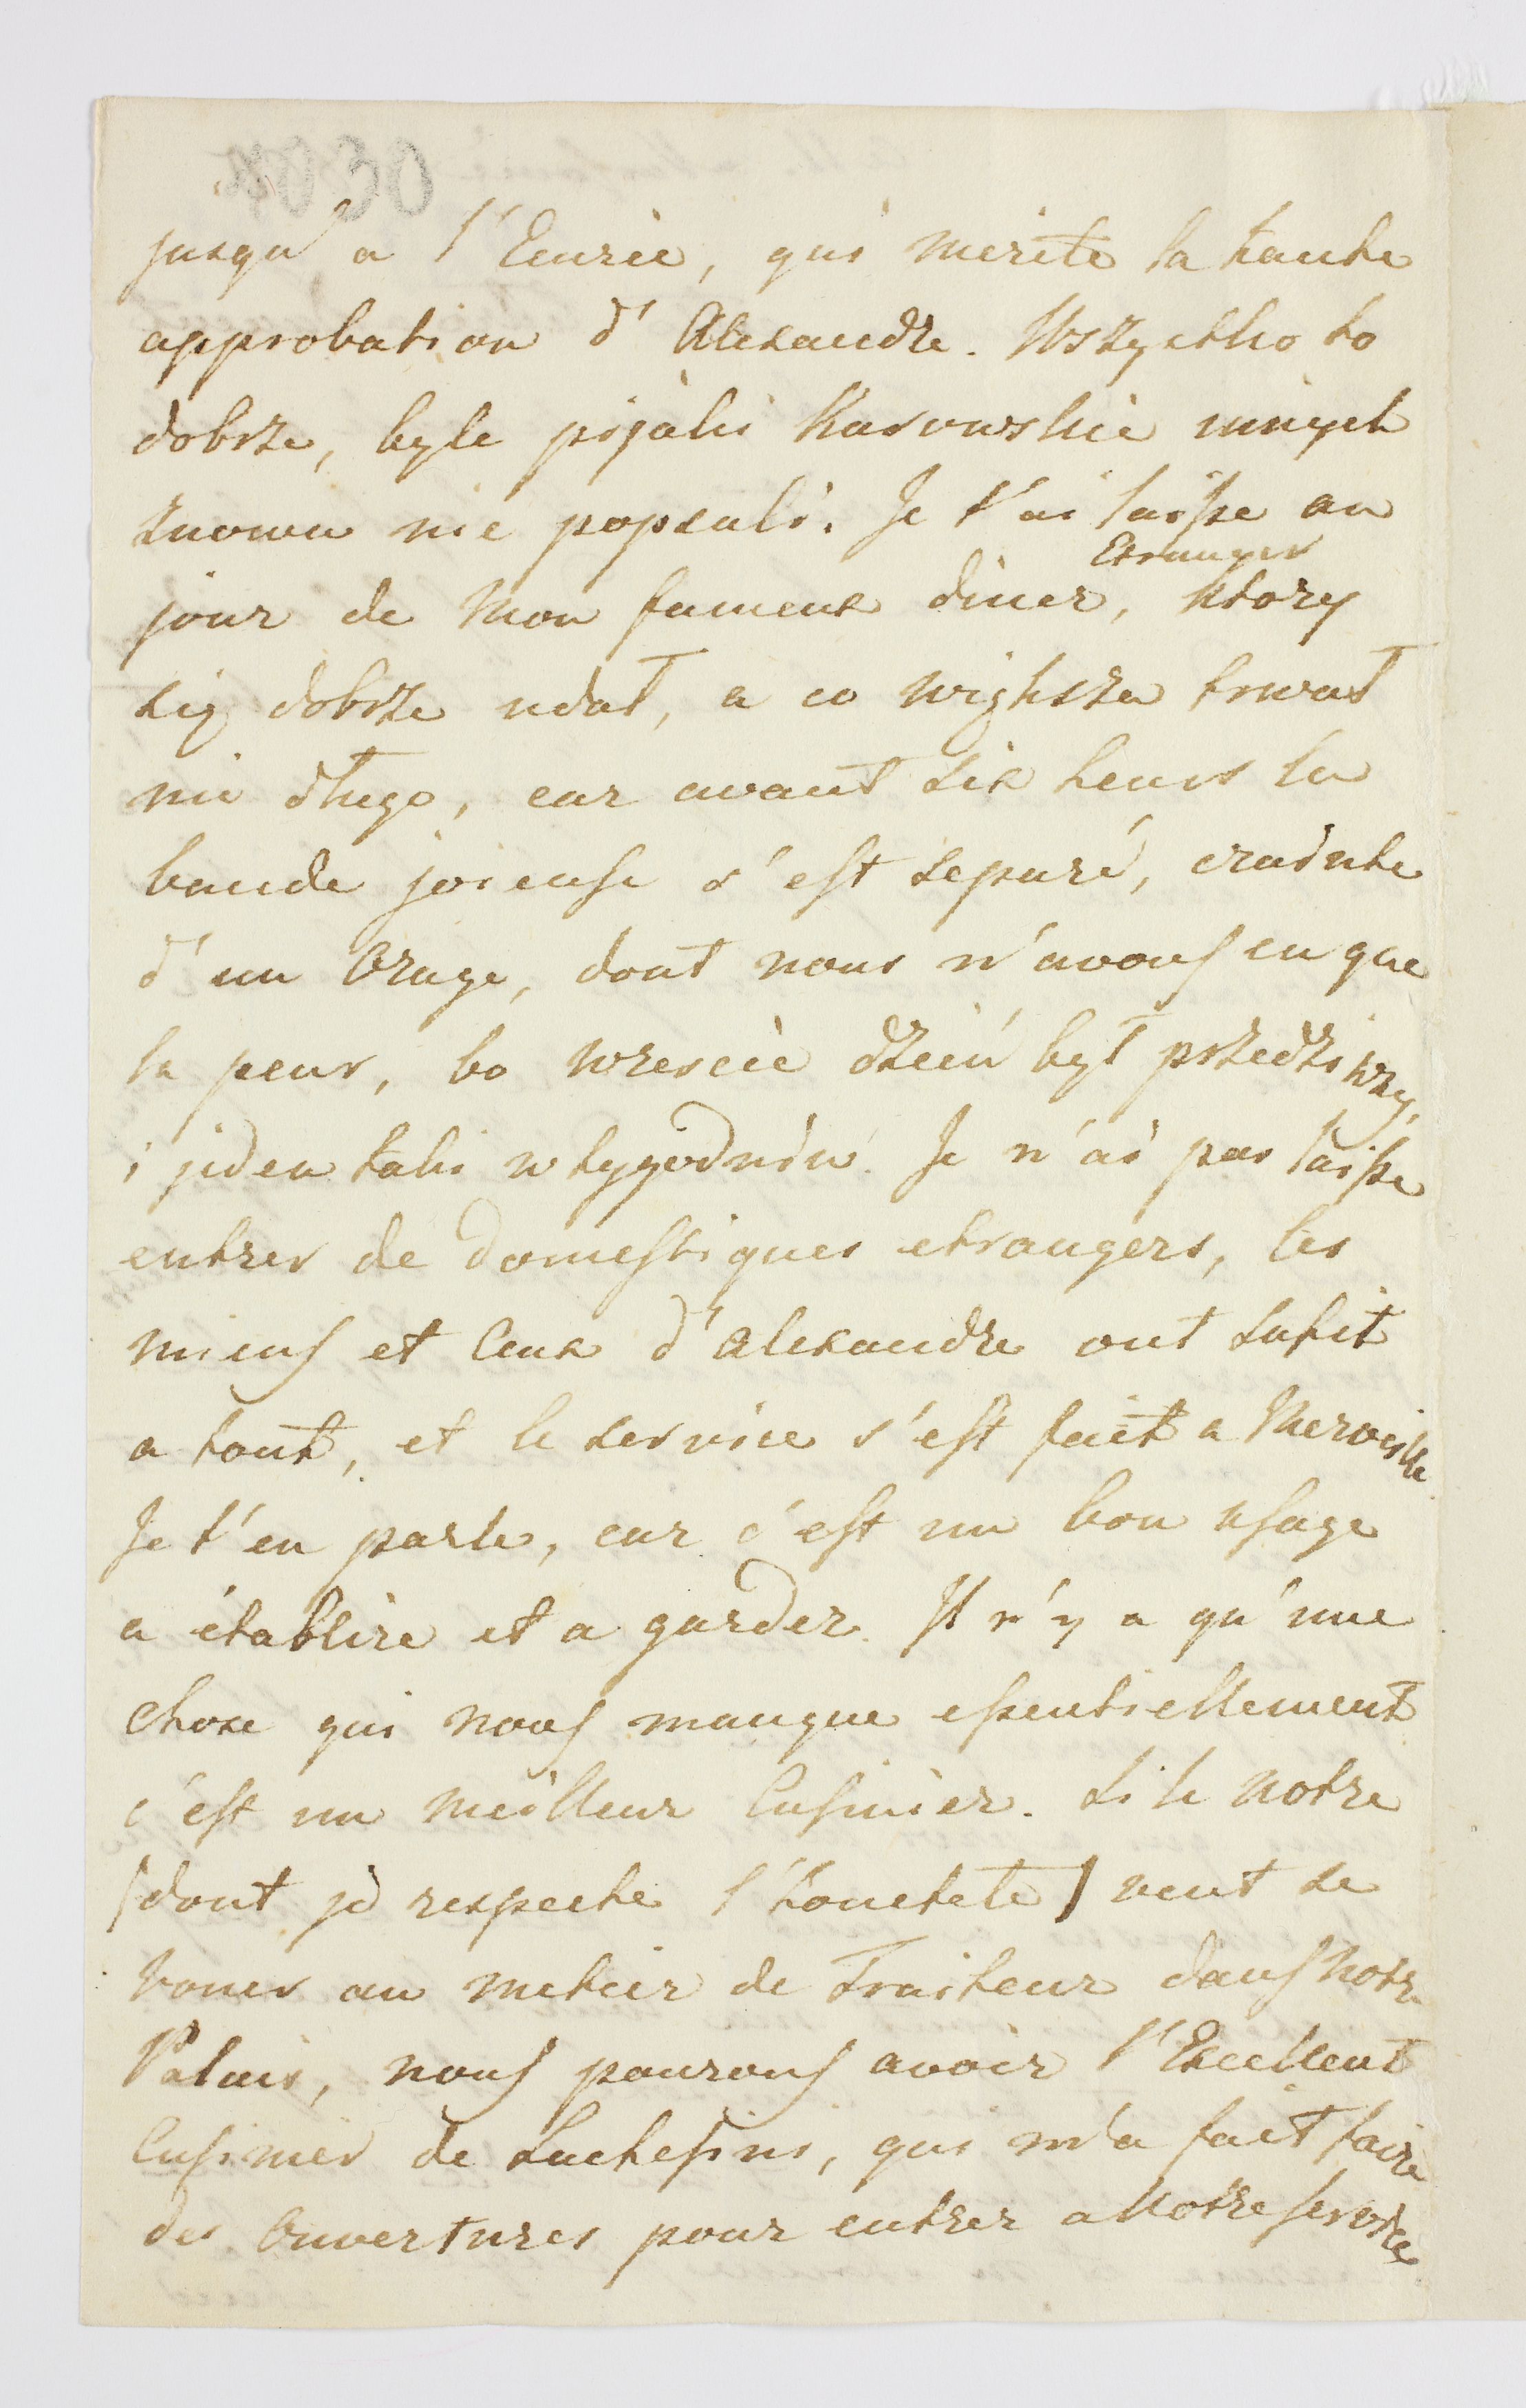 jusqu' a l'Ecurie, qui merite la haute
approbation d'Alexandre. Wszystko to
dobrze, byle pijaki Karowskie innych
znowu nie popsuli. Je t'ai laisse au
Etranger
jour de mon fameux diner, ktory
się dobrze udał, a co większa trwał
nie długo, car avant six heurs la
bande joieuse s'est separé, crainte
d'un Orage, dont nous n'avons eu que
la peur, bo wrescie dzień był przedziwny,
i jeden taki w tygodniu. Je n'ai pas laisse
entrer de domestiques etrangers, les
miens et Ceux d'Alexandre ont sufit
a tout, et le service s'est fait a Merveille
Je t'en parle, car c'est un bon usage
a établire et a garder. Il n'y a qu'une
chose qui nous manque essentiellement
c'est un meilleur Cusinier. Si le notre
(dont je respecte l'honetete) veut se
vouer au metier de Traiteur dans notre
Palais, nous pourons avoir l'Excellent
Cusinier de Luchesini, qui m'a fait faire
des Ouvertures pour entrer a Notre service